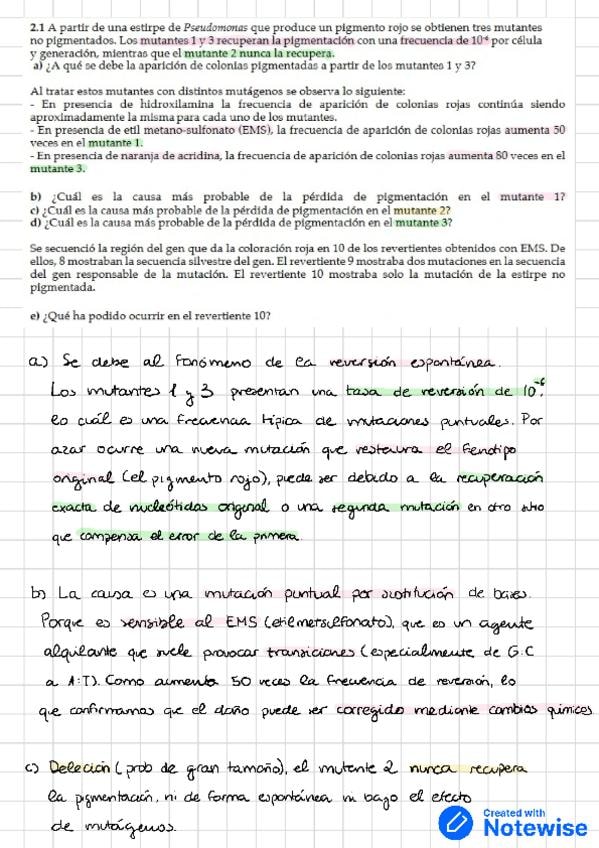 2.1 A partir de una estirpe de Pseudomonas que produce un pigmento rojo se obtienen tres mutantes
no pigmentados. Los mutantes 1 y 3 recuperan la pigmentación con una frecuencia de 10⁻⁶ por célula
y generación, mientras que el mutante 2 nunca la recupera.
a) ¿A qué se debe la aparición de colonias pigmentadas a partir de los mutantes 1 y 3?
Al tratar estos mutantes con distintos mutágenos se observa lo siguiente:
- En presencia de hidroxilamina la frecuencia de aparición de colonias rojas continúa siendo
aproximadamente la misma para cada uno de los mutantes.
- En presencia de etil metano-sulfonato (EMS), la frecuencia de aparición de colonias rojas aumenta 50
veces en el mutante 1.
- En presencia de naranja de acridina, la frecuencia de aparición de colonias rojas aumenta 80 veces en el
mutante 3.
b) ¿Cuál es la causa más probable de la pérdida de pigmentación en el mutante 1?
c) ¿Cuál es la causa más probable de la pérdida de pigmentación en el mutante 2?
d) ¿Cuál es la causa más probable de la pérdida de pigmentación en el mutante 3?
Se secuenció la región del gen que da la coloración roja en 10 de los revertientes obtenidos con EMS. De
ellos, 8 mostraban la secuencia silvestre del gen. El revertiente 9 mostraba dos mutaciones en la secuencia
del gen responsable de la mutación. El revertiente 10 mostraba solo la mutación de la estirpe no
pigmentada.
e) ¿Qué ha podido ocurrir en el revertiente 10?
a) Se debe al fonómeno de la reversión espontánea.
Los mutantes 1 y 3 presentan una tasa de reversión de 10⁻⁶,
lo cuál es una frecuencia típica de mutaciones puntuales. Por
azar ocurre una nueva mutación que restaura el fenotipo
original (el pigmento rojo), puede ser debido a la recuperación
exacta de nucleótidos original o una segunda mutación en otro sitio
que compensa el error de la primera.
b) La causa es una mutación puntual por sustitución de bases.
Porque es sensible al EMS (etilmetsulfonato), que es un agente
alquilante que suele provocar transiciones (especialmente de G:C
a A:T). Como aumenta 50 veces la frecuencia de reversión, lo
que confirmamos que el daño puede ser corregido mediante cambios químicos
c) Deleción (prob de gran tamaño), el mutante 2 nunca recupera
la pigmentación, ni de forma espontánea ni bajo el efecto
de mutágenos.
Created with
Notewise